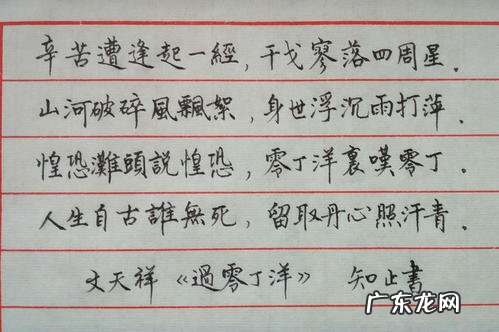 辛苦遭逢起一經，干戈寥落四周星．
山河破碎風飄絮，身世浮沉雨打萍．
惶恐灘頭說惶恐，零丁洋裏嘆零丁．
人生自古誰無死，留取丹心照汗青．
文天祥《過零丁洋》 知止書
广东龙网